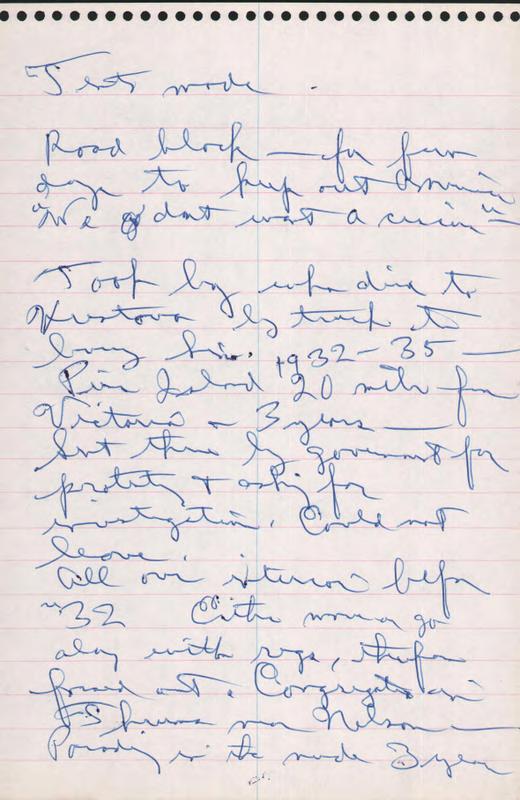 Tents made.
Road block — for few
days to keep out
"We don't want a
Took by who died to
Krestova by truck to
bury him. 1932-35 —
Pier Island 20 miles from
Victoria — 3 years —
Sent there by government for
protesting + asking for
investigation. Could not
leave.
All over interior before
"32 Either women go
along with, therefore
forced out. Congregated in
near Nelson —
Parading in the nude 3 years